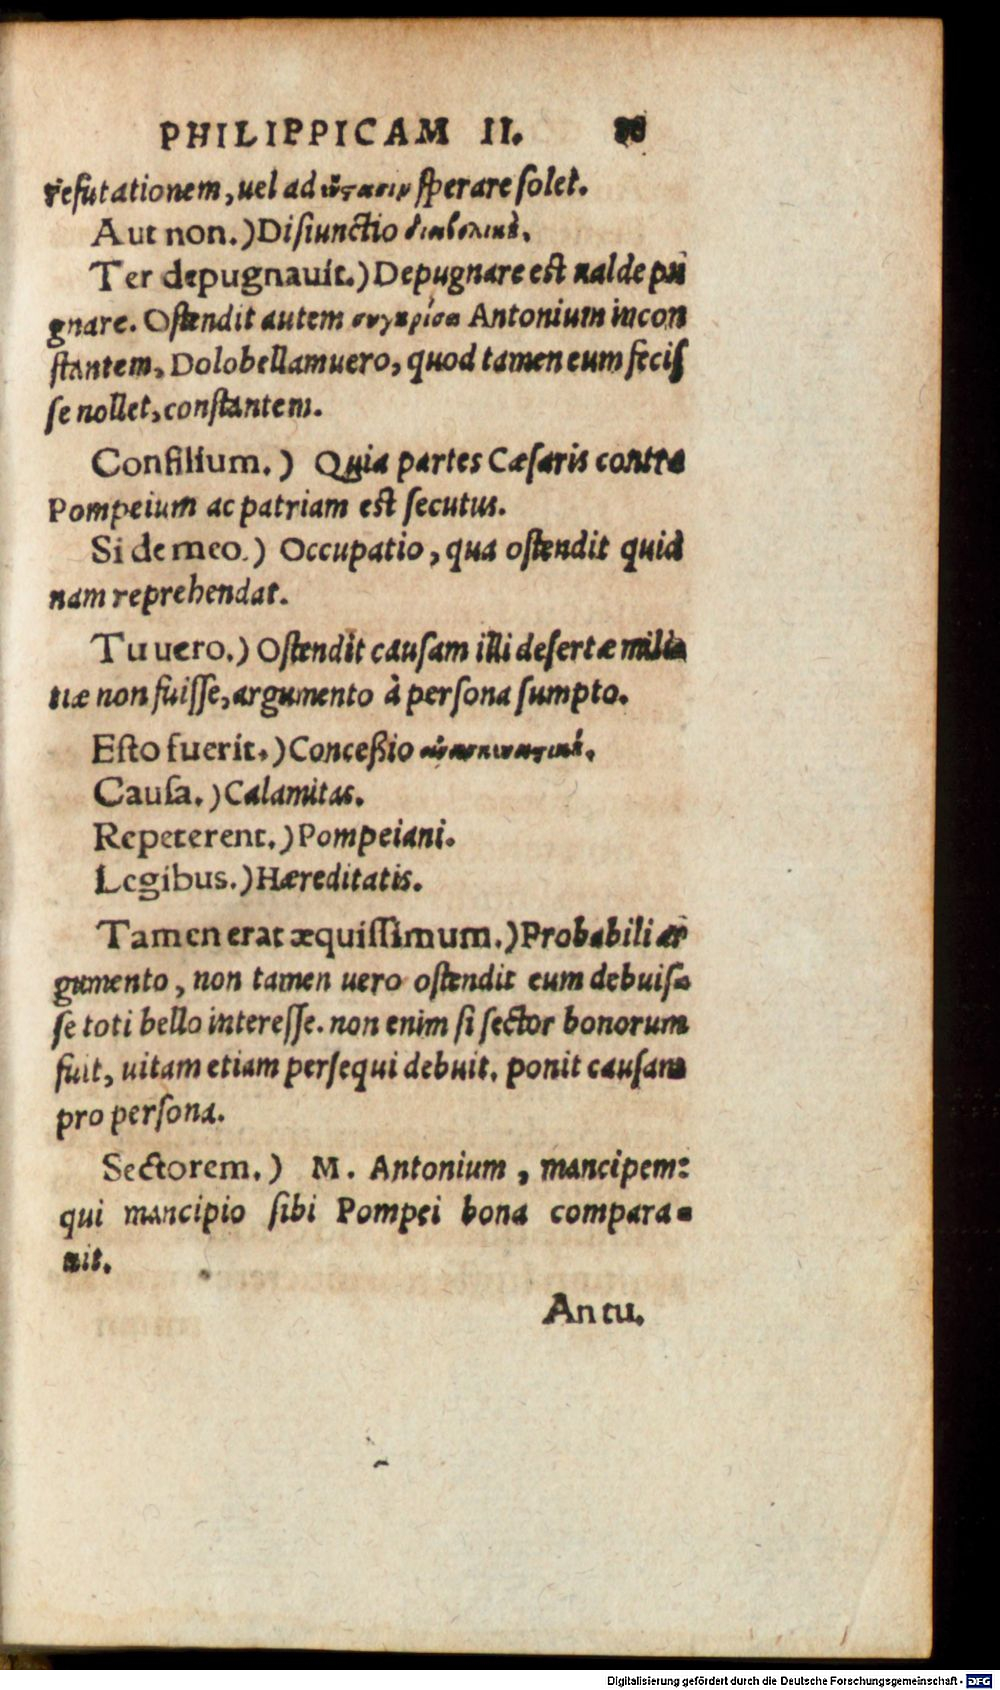 PHILIPPICAM II.
refutationem, uel ad ἔνστασιν sperare solet.
Aut non.) Disiunctio διαβολικὴ.
Ter depugnauit.) Depugnare est ualde pu
gnare. Ostendit autem συγκρίσει Antonium incon
stantem, Dolobellam uero, quod tamen eum fecis
se nollet, constantem.
Consilium.) Quia partes Cæsaris contra
Pompeium ac patriam est secutus.
Si de meo.) Occupatio, qua ostendit quid
nam reprehendat.
Tu uero.) Ostendit causam illi desertæ mili⸗
tiæ non fuisse, argumento à persona sumpto.
Esto fuerit.) Conceßio
Causa.) Calamitas.
Repeterent.) Pompeiani.
Legibus.) Hæreditatis.
Tamen erat æquissimum.) Probabili ar
gumento, non tamen uero ostendit eum debuis⸗
se toti bello interesse. non enim si sector bonorum
fuit, uitam etiam persequi debuit. ponit causam
pro persona.
Sectorem.) M. Antonium, mancipem:
qui mancipio sibi Pompei bona compara⸗
uit.
An tu.
Digitalisierung gefördert durch die Deutsche Forschungsgemeinschaft - DFG